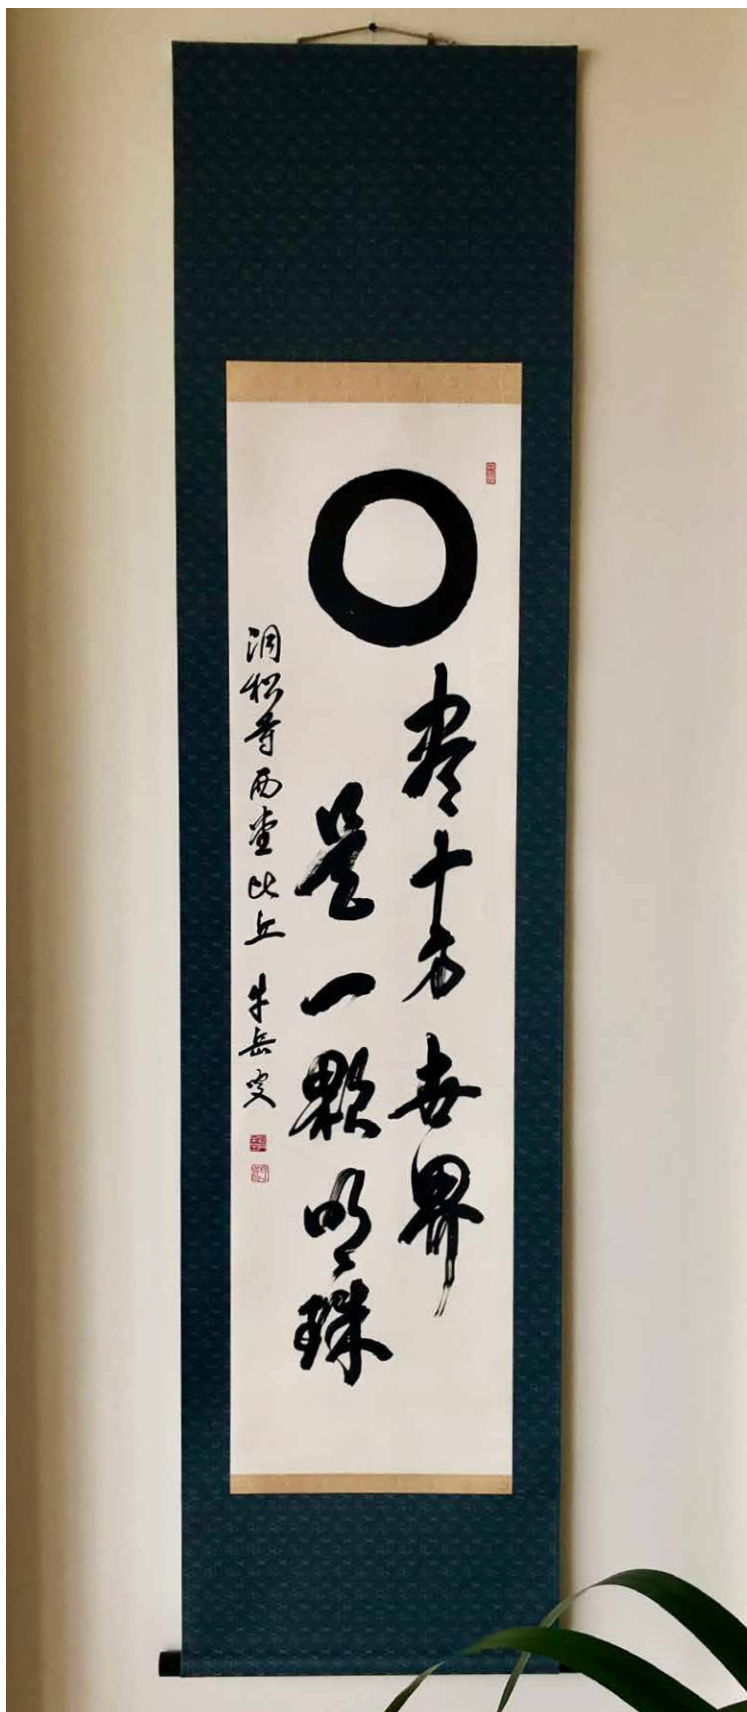 尽十方世界
是一顆明珠
洞松寺西堂比丘 牛岳叟